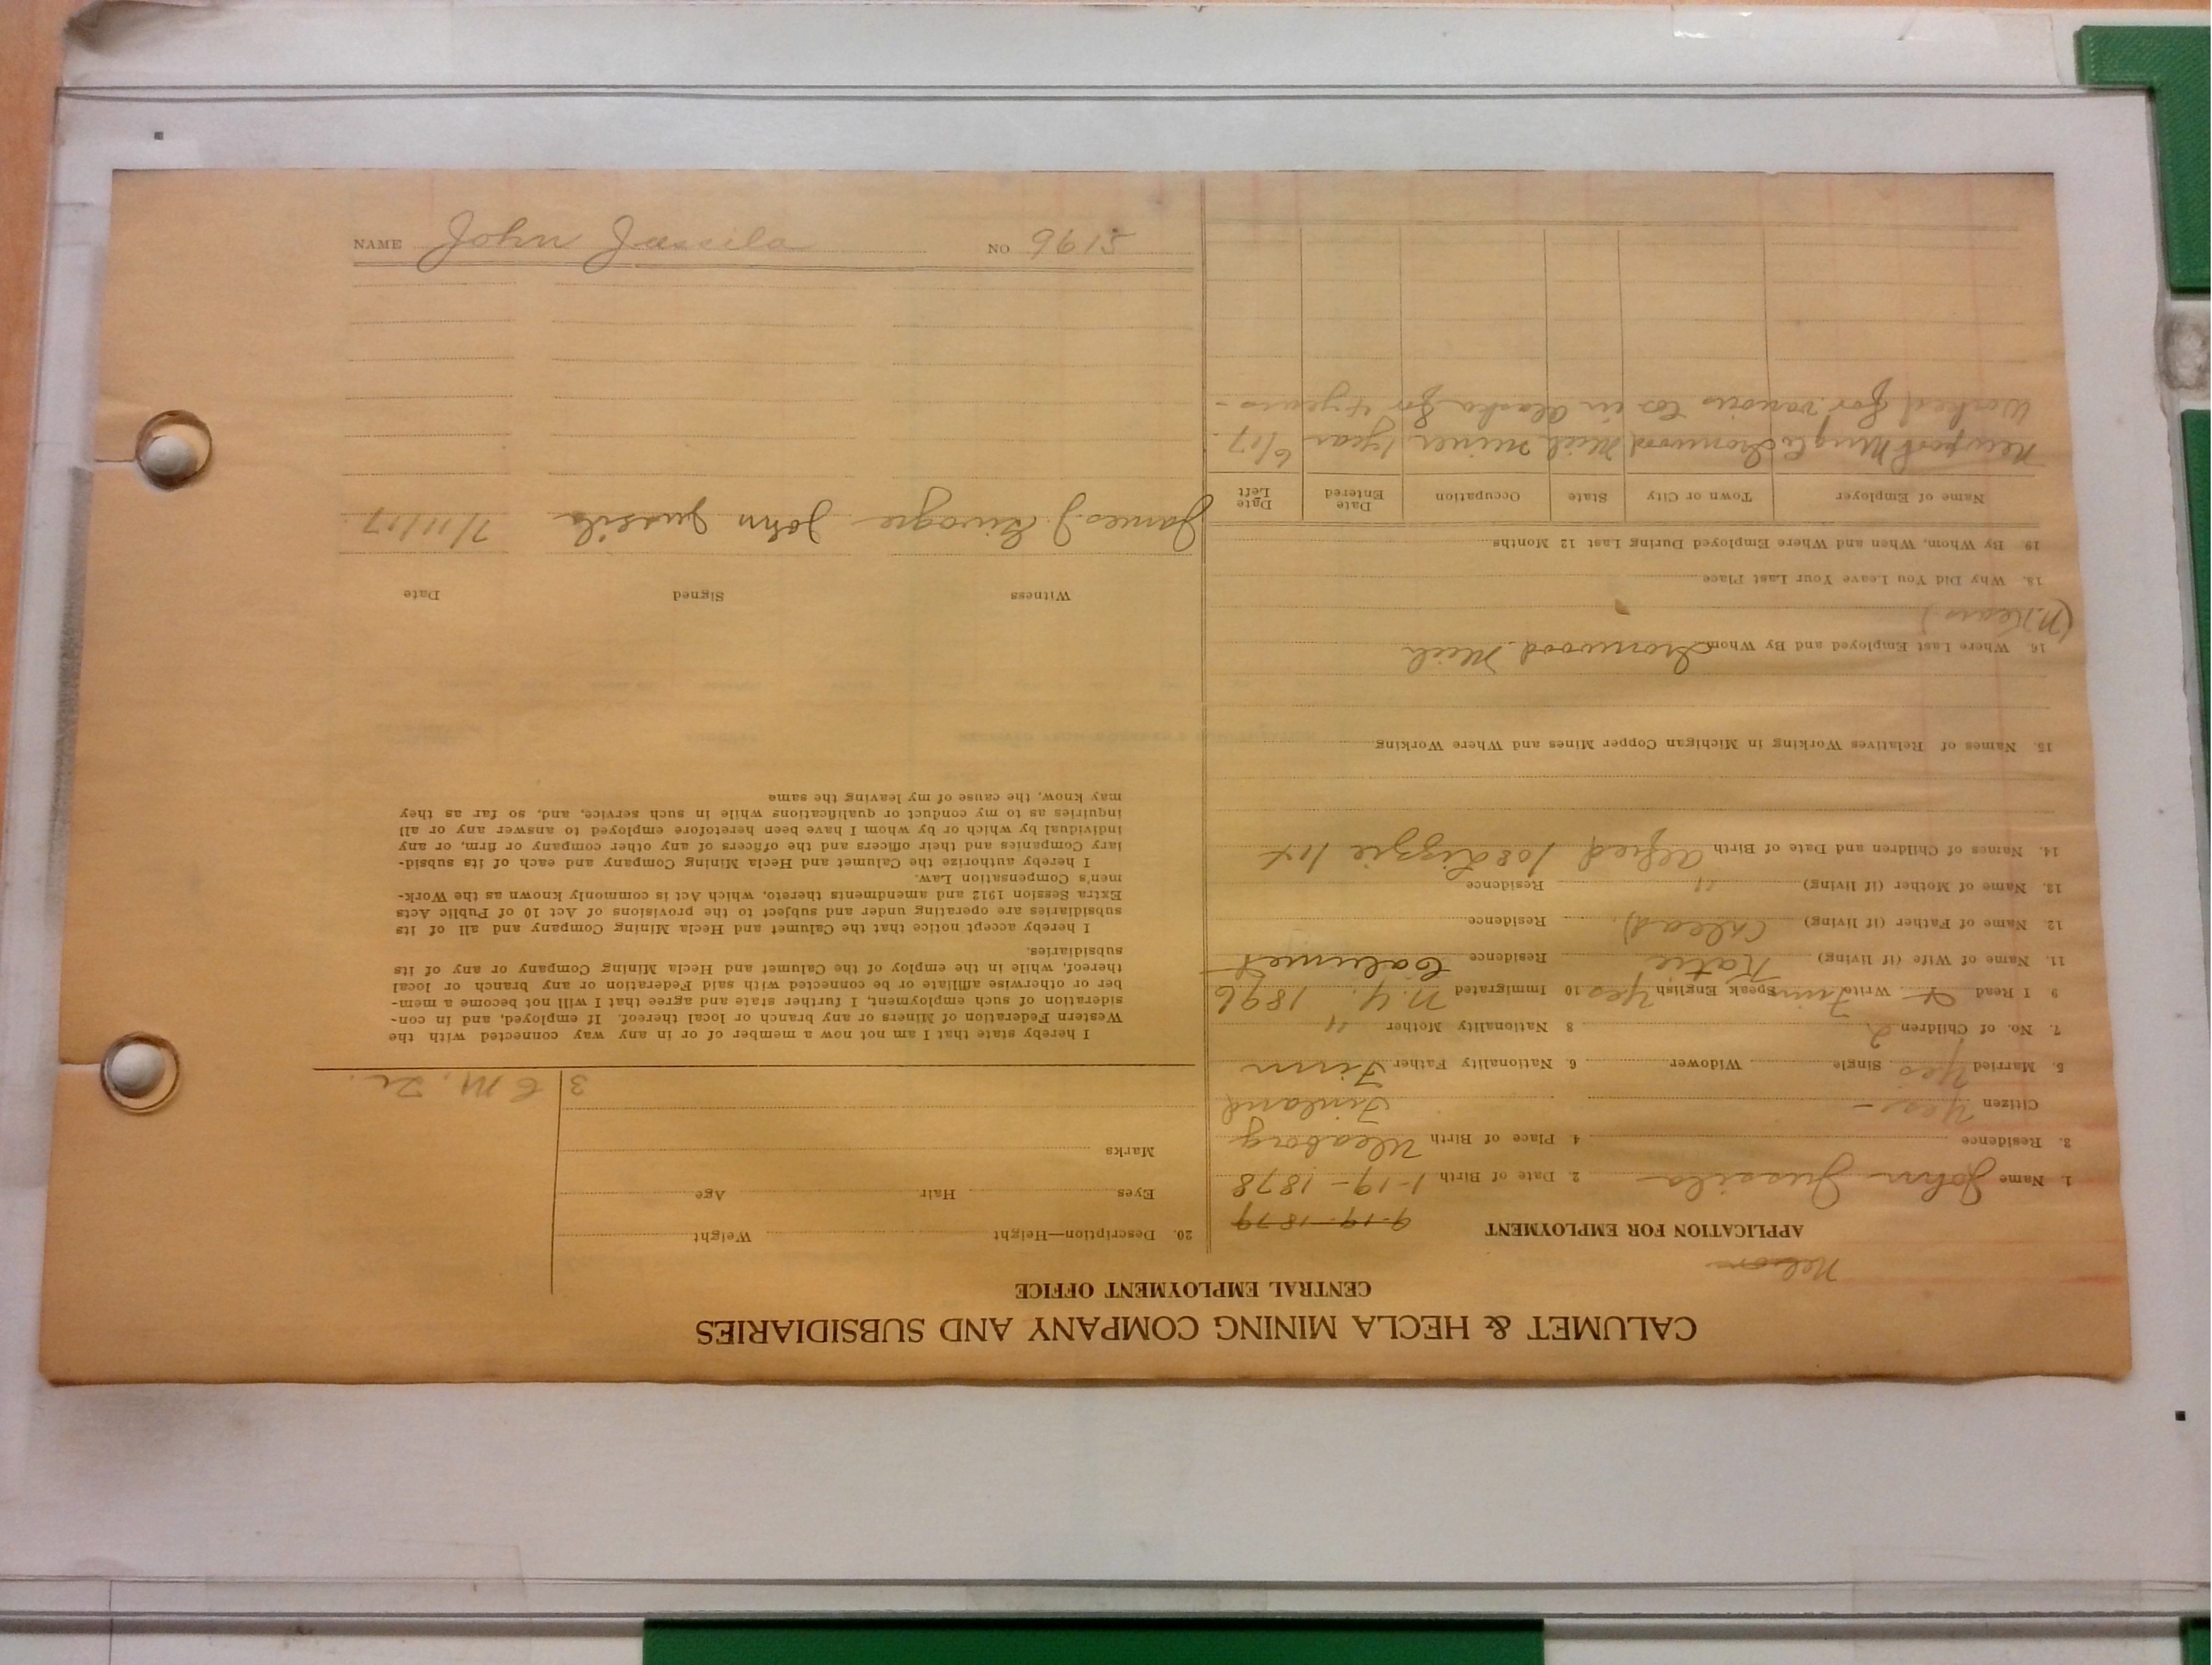 NAME John Jussila NO 9615
CALUMET & HECLA MINING COMPANY AND SUBSIDIARIES
CENTRAL EMPLOYMENT OFFICE
Nelson
APPLICATION FOR EMPLOYMENT
9-19-1879
1. Name John Jussila 2. Date of Birth 1-19-1878
3. Residence 4. Place of Birth Uleaborg
Citizen Yes - Finland
5. Married Yes Single Widower 6. Nationality Father Finn
7. No. of Children 2 8 Nationality Mother "
9 I Read & Write Finn Speak English Yes 10 Immigrated N.Y. 1896
11. Name of Wife (if living) Katie Residence Calumet
12. Name of Father (if living) (dead) Residence
13. Name of Mother (if living) " Residence
14. Names of Children and Date of Birth Alfred 10 & Lizzie 1 1/4
15. Names of Relatives Working in Michigan Copper Mines and Where Working
16. Where Last Employed and By Whom Ironwood Mich
18. Why Did You Leave Your Last Place
19. By Whom, When and Where Employed During Last 12 Months
Name of Employer Town or City State Occupation Date Entered Date Left
Newport Mng Co Ironwood Mich miner 1 year 6/17
Worked for various Cos in Alaska for 4 years -
20. Description—Height Weight
Eyes Hair Age
Marks
3 6 M. Tr.
I hereby state that I am not now a member of or in any way connected with the
Western Federation of Miners or any branch or local thereof. If employed, and in con-
sideration of such employment, I further state and agree that I will not become a mem-
ber or otherwise affiliate or be connected with said Federation or any branch or local
thereof, while in the employ of the Calumet and Hecla Mining Company or any of its
subsidiaries.
I hereby accept notice that the Calumet and Hecla Mining Company and all of its
subsidiaries are operating under and subject to the provisions of Act 10 of Public Acts
Extra Session 1912 and amendments thereto, which Act is commonly known as the Work-
men's Compensation Law.
I hereby authorize the Calumet and Hecla Mining Company and each of its subsid-
iary Companies and their officers and the officers of any other company or firm, or any
individual by which or by whom I have been heretofore employed to answer any or all
inquiries as to my conduct or qualifications while in such service, and, so far as they
may know, the cause of my leaving the same
Witness Signed Date
James J. John Jussila 7/11/17